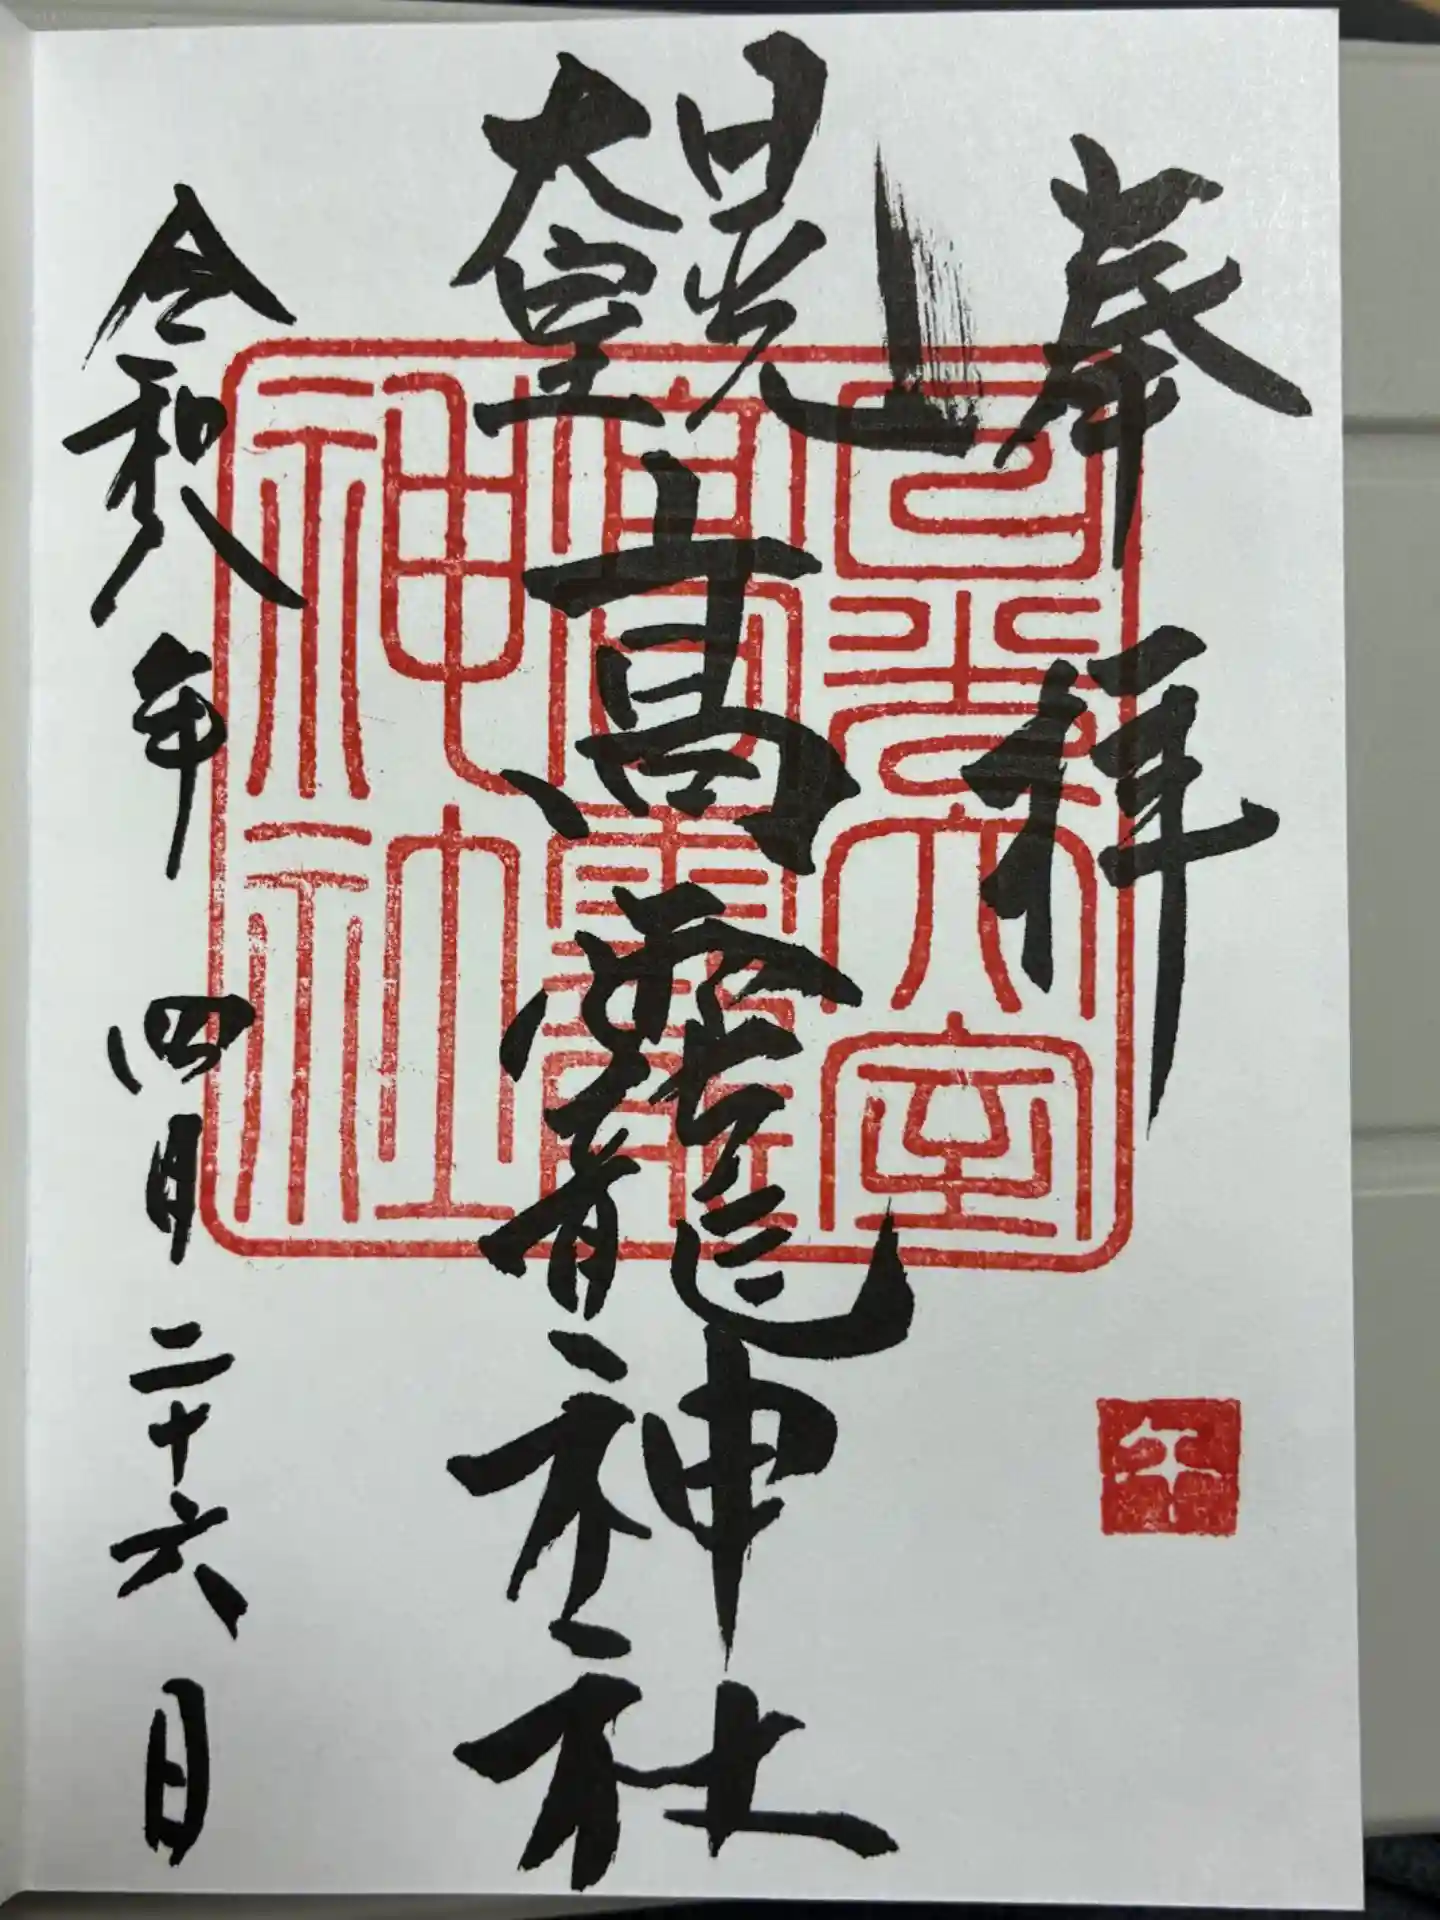 奉拝
日光
大室
高龗神社
令和八年四月二十六日
日光大室
高龗
神社
午